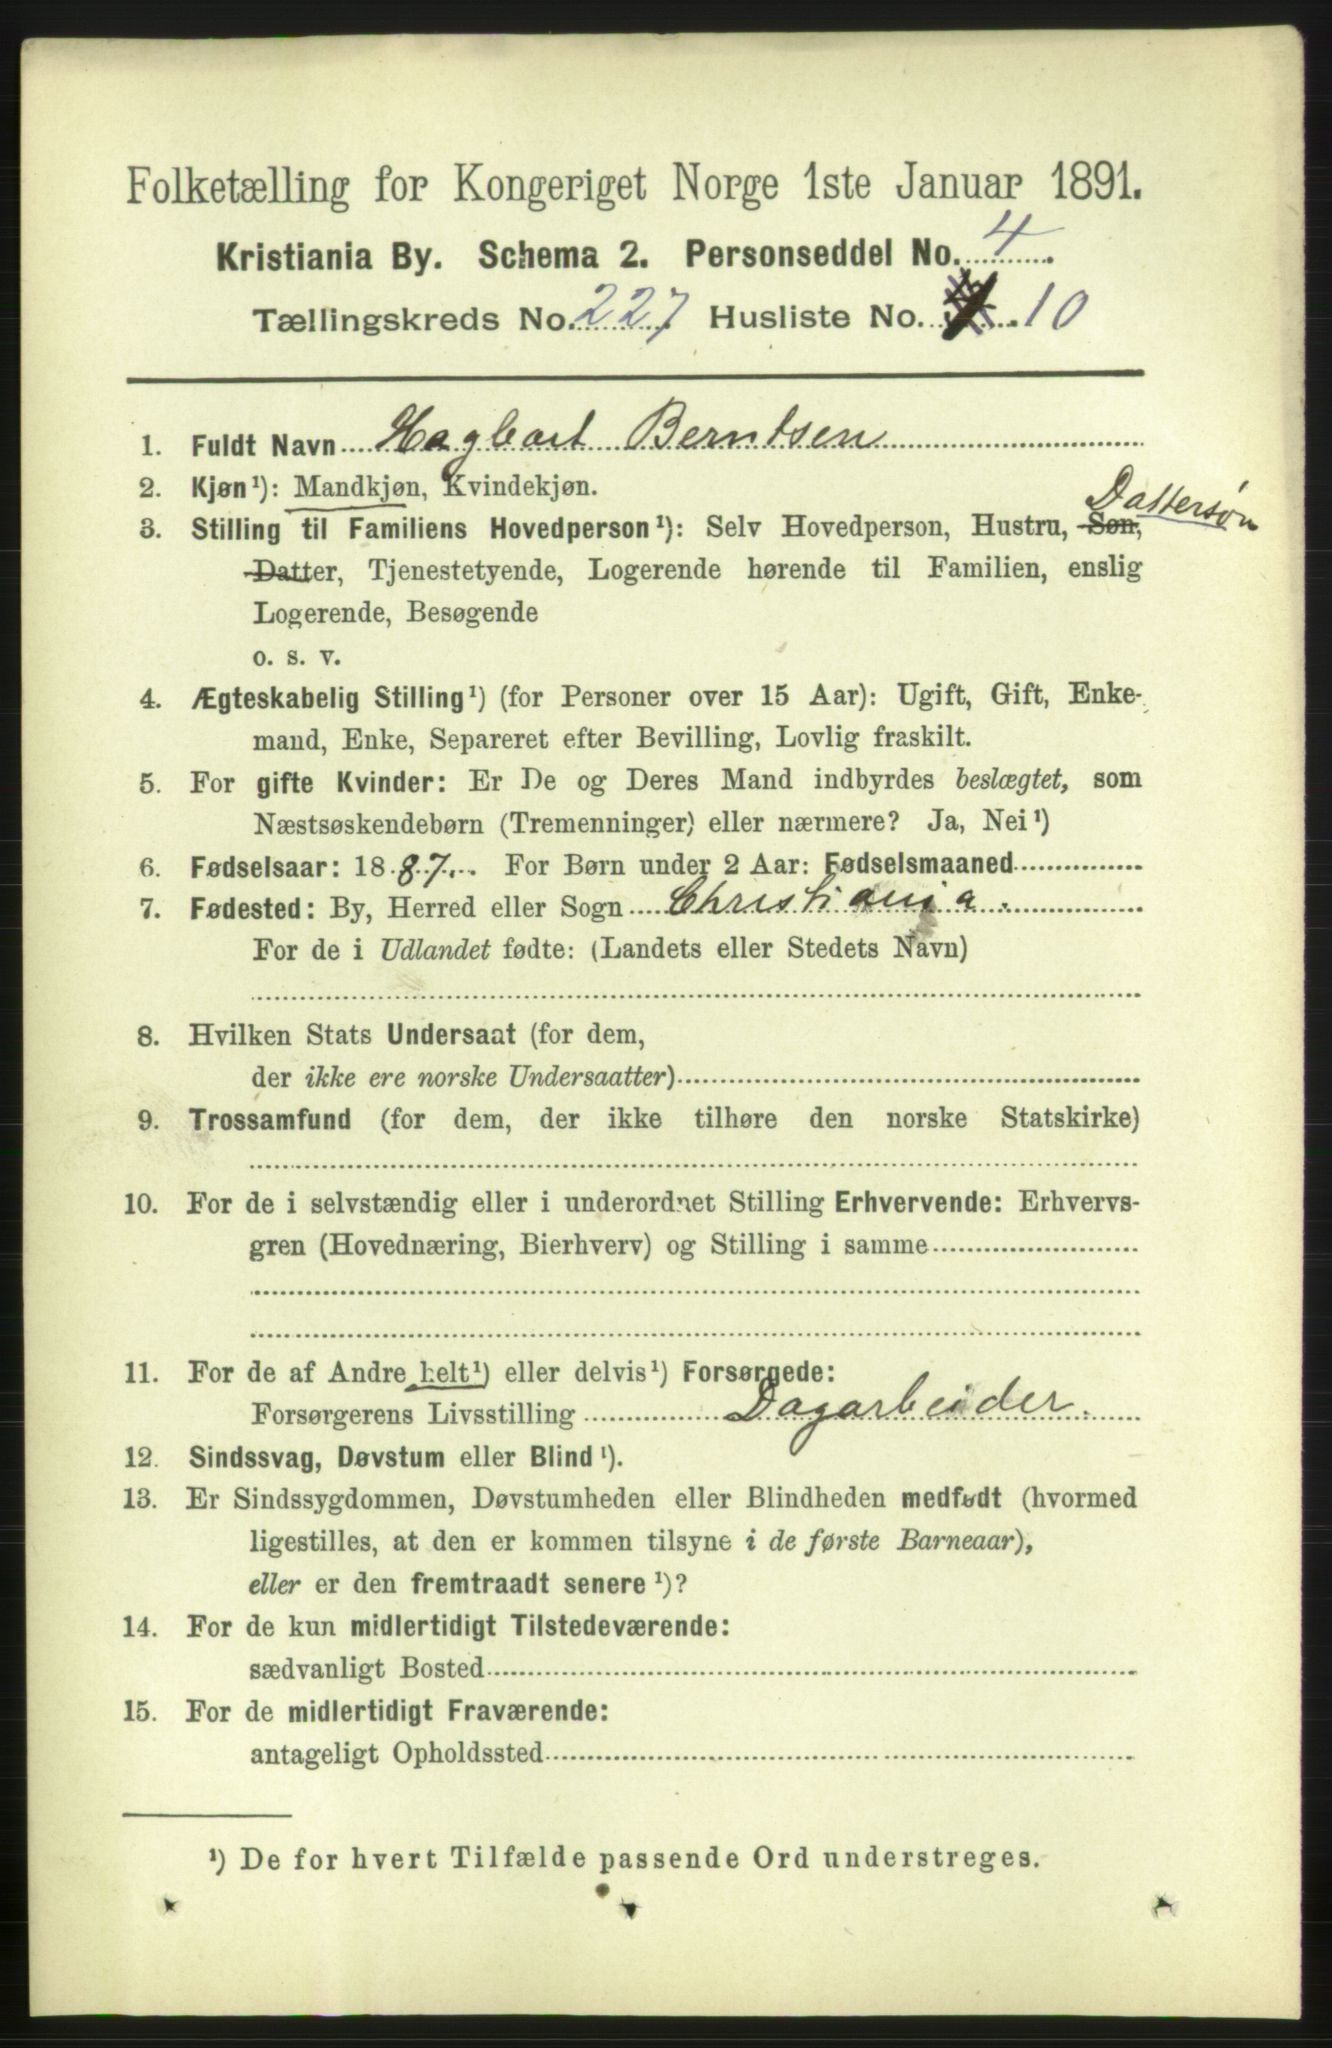 Folketælling for Kongeriget Norge 1ste Januar 1891.
Kristiania By. Schema 2. Personseddel No. 4
Tællingskreds No. 227 Husliste No. 10
1. Fuldt Navn Hagbart Berntsen
2. Kjøn¹): Mandkjøn, Kvindekjøn.
Dattersøn
3. Stilling til Familiens Hovedperson¹): Selv Hovedperson, Hustru, Søn,
Datter, Tjenestetyende, Logerende hørende til Familien, enslig
Logerende, Besøgende
o. s. v.
4. Ægteskabelig Stilling¹) (for Personer over 15 Aar): Ugift, Gift, Enke-
mand, Enke, Separeret efter Bevilling, Lovlig fraskilt.
5. For gifte Kvinder: Er De og Deres Mand indbyrdes beslægtet, som
Næstsøskendebørn (Tremenninger) eller nærmere? Ja, Nei¹)
6. Fødselsaar: 1887. For Børn under 2 Aar: Fødselsmaaned
7. Fødested: By, Herred eller Sogn Christiania.
For de i Udlandet fødte: (Landets eller Stedets Navn)
8. Hvilken Stats Undersaat (for dem,
der ikke ere norske Undersaatter)
9. Trossamfund (for dem, der ikke tilhøre den norske Statskirke)
10. For de i selvstændig eller i underordnet Stilling Erhvervende: Erhvervs-
gren (Hovednæring, Bierhverv) og Stilling i samme
11. For de af Andre helt¹) eller delvis¹) Forsørgede:
Forsørgerens Livsstilling Dagarbeider.
12. Sindssvag, Døvstum eller Blind¹).
13. Er Sindssygdommen, Døvstumheden eller Blindheden medfødt (hvormed
ligestilles, at den er kommen tilsyne i de første Barneaar),
eller er den fremtraadt senere¹)?
14. For de kun midlertidigt Tilstedeværende:
sædvanligt Bosted
15. For de midlertidigt Fraværende:
antageligt Opholdssted
¹) De for hvert Tilfælde passende Ord understreges.